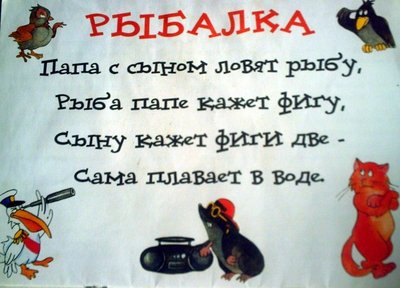 РЫБАЛКА
Папа с сыном ловят рыбу,
Рыба папе кажет фигу,
Сыну кажет фиги две -
Сама плавает в воде.